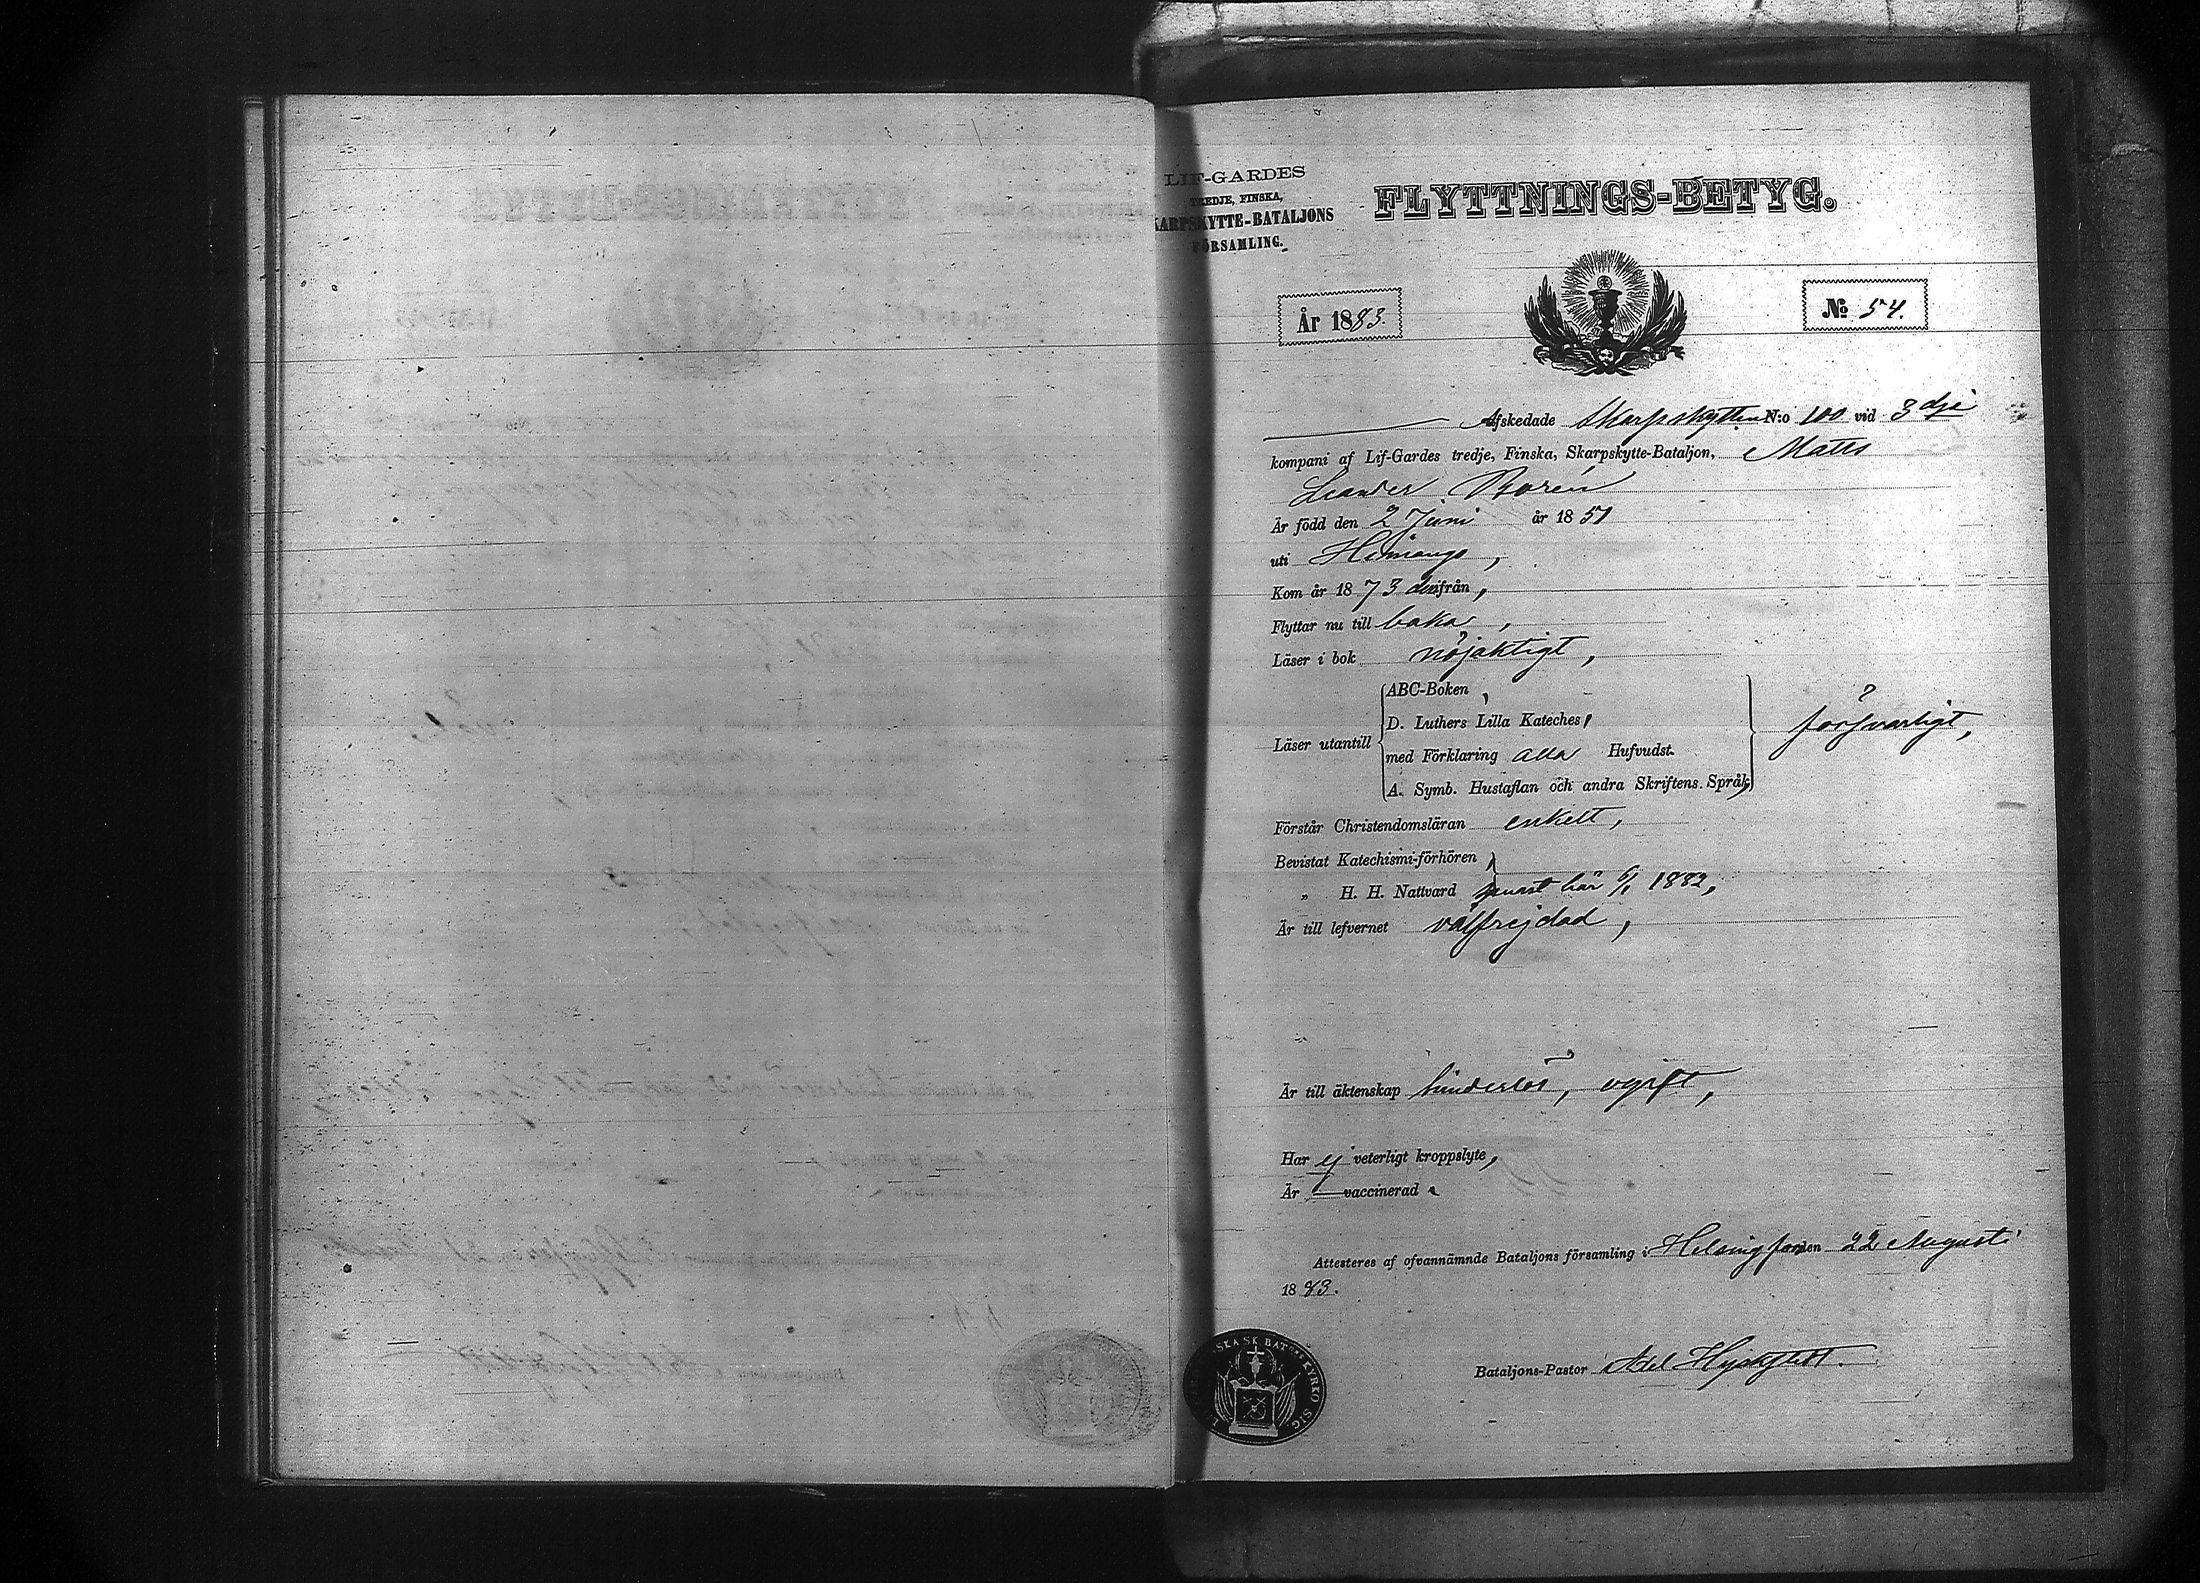 LIF-GARDES
TREDJE, FINSKA,
KARPSKYTTE-BATALJONS
FÖRSAMLING.
FLYTTNINGS-BETYG.
År 1883.
No 54.
Afskedade Skarpskytten N:o 100 vid 3dje
kompani af Lif-Gardes tredje, Finska, Skarpskytte-Bataljon, Matts
Leander Borén
Är född den 2 Juni år 1851
uti Himango,
Kom år 1873 derifrån,
Flyttar nu till baka,
Läser i bok nöjaktigt,
Läser utantill
ABC-Boken,
D. Luthers Lilla Kateches,
med Förklaring alla Hufvudst.
A. Symb. Hustaflan och andra Skriftens. Språk,
försvarligt,
Förstår Christendomsläran enkelt,
Bevistat Katechismi-förhören
„ H. H. Nattvard senast här 6/1 1882,
Är till lefvernet välfrejdad,
Är till äktenskap hinderlös, ogift,
Har ej veterligt kroppslyte,
Är — vaccinerad
Attesteres af ofvannämnde Bataljons församling i Helsingfors den 22 Augusti
1883.
Bataljons-Pastor